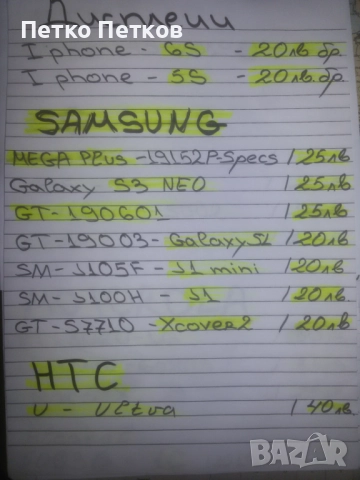 Дисплеи
Петко Петков
Iphone - 6S - 20лв бр.
Iphone - 5S - 20лв.бр.
SAMSUNG
MEGA PLus -19152P-Specs / 25лв
Galaxy S3 NEO / 25лв
GT-190601 / 25лв
GT-19003- GalaxySL / 20лв
SM-J105F - J1 mini / 20лв
SM-J100H - J1 / 20лв.
GT-S7710 - Xcover2 / 20лв
HTC
U - Ultra / 40лв.
BAZAR
bg